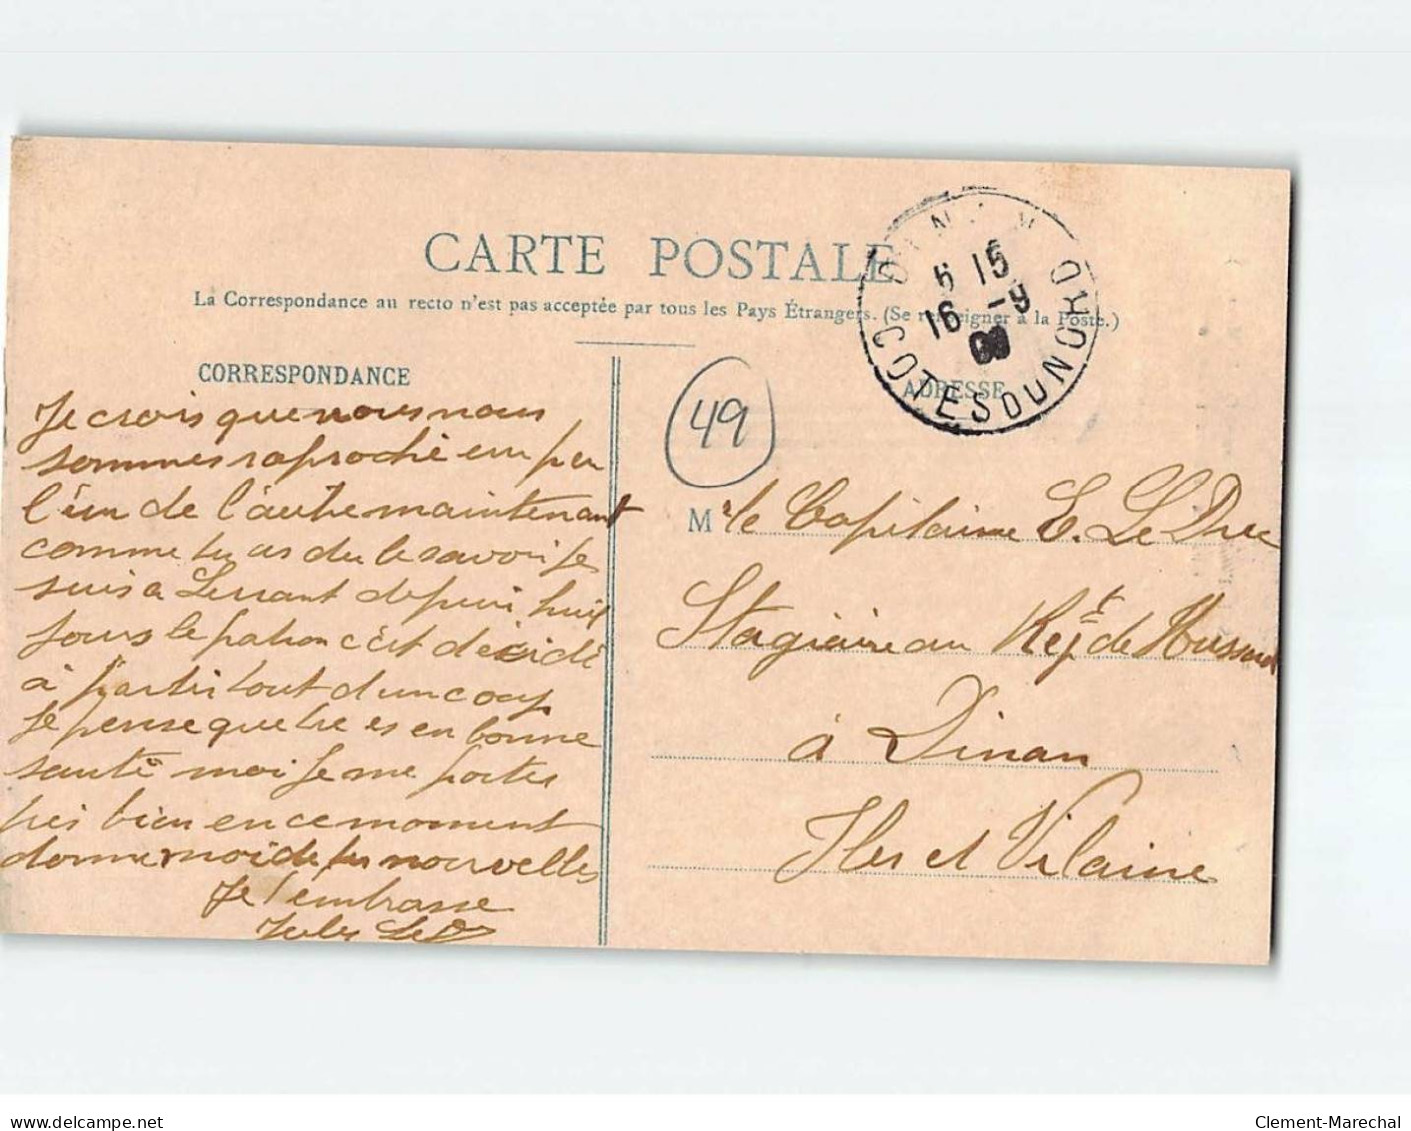 CARTE POSTALE
La Correspondance au recto n'est pas acceptée par tous les Pays Étrangers. (Se renseigner à la Poste.)
CORRESPONDANCE
Je crois que nous nous
sommes raproché eun peu
l'éun de l'áutre maintenant
comme tu as du le savoir je
suis a depuis huit
jours le patron c'ét décidé
à partir tout d'un coup
je pense que tu es en bonne
santé moi je me portes
très bien en ce moment
donne moi de tes nouvelles
Je t'embrasse
Jules LeD
49
DINAN
6 15
16 -9
09
COTES DU NORD
ADRESSE
M r le Capitaine E. Le Duc
Stagiaire au Regt de Hussard
à Dinan
Iles et Vilaine
delcampe.net
Clement-Marechal